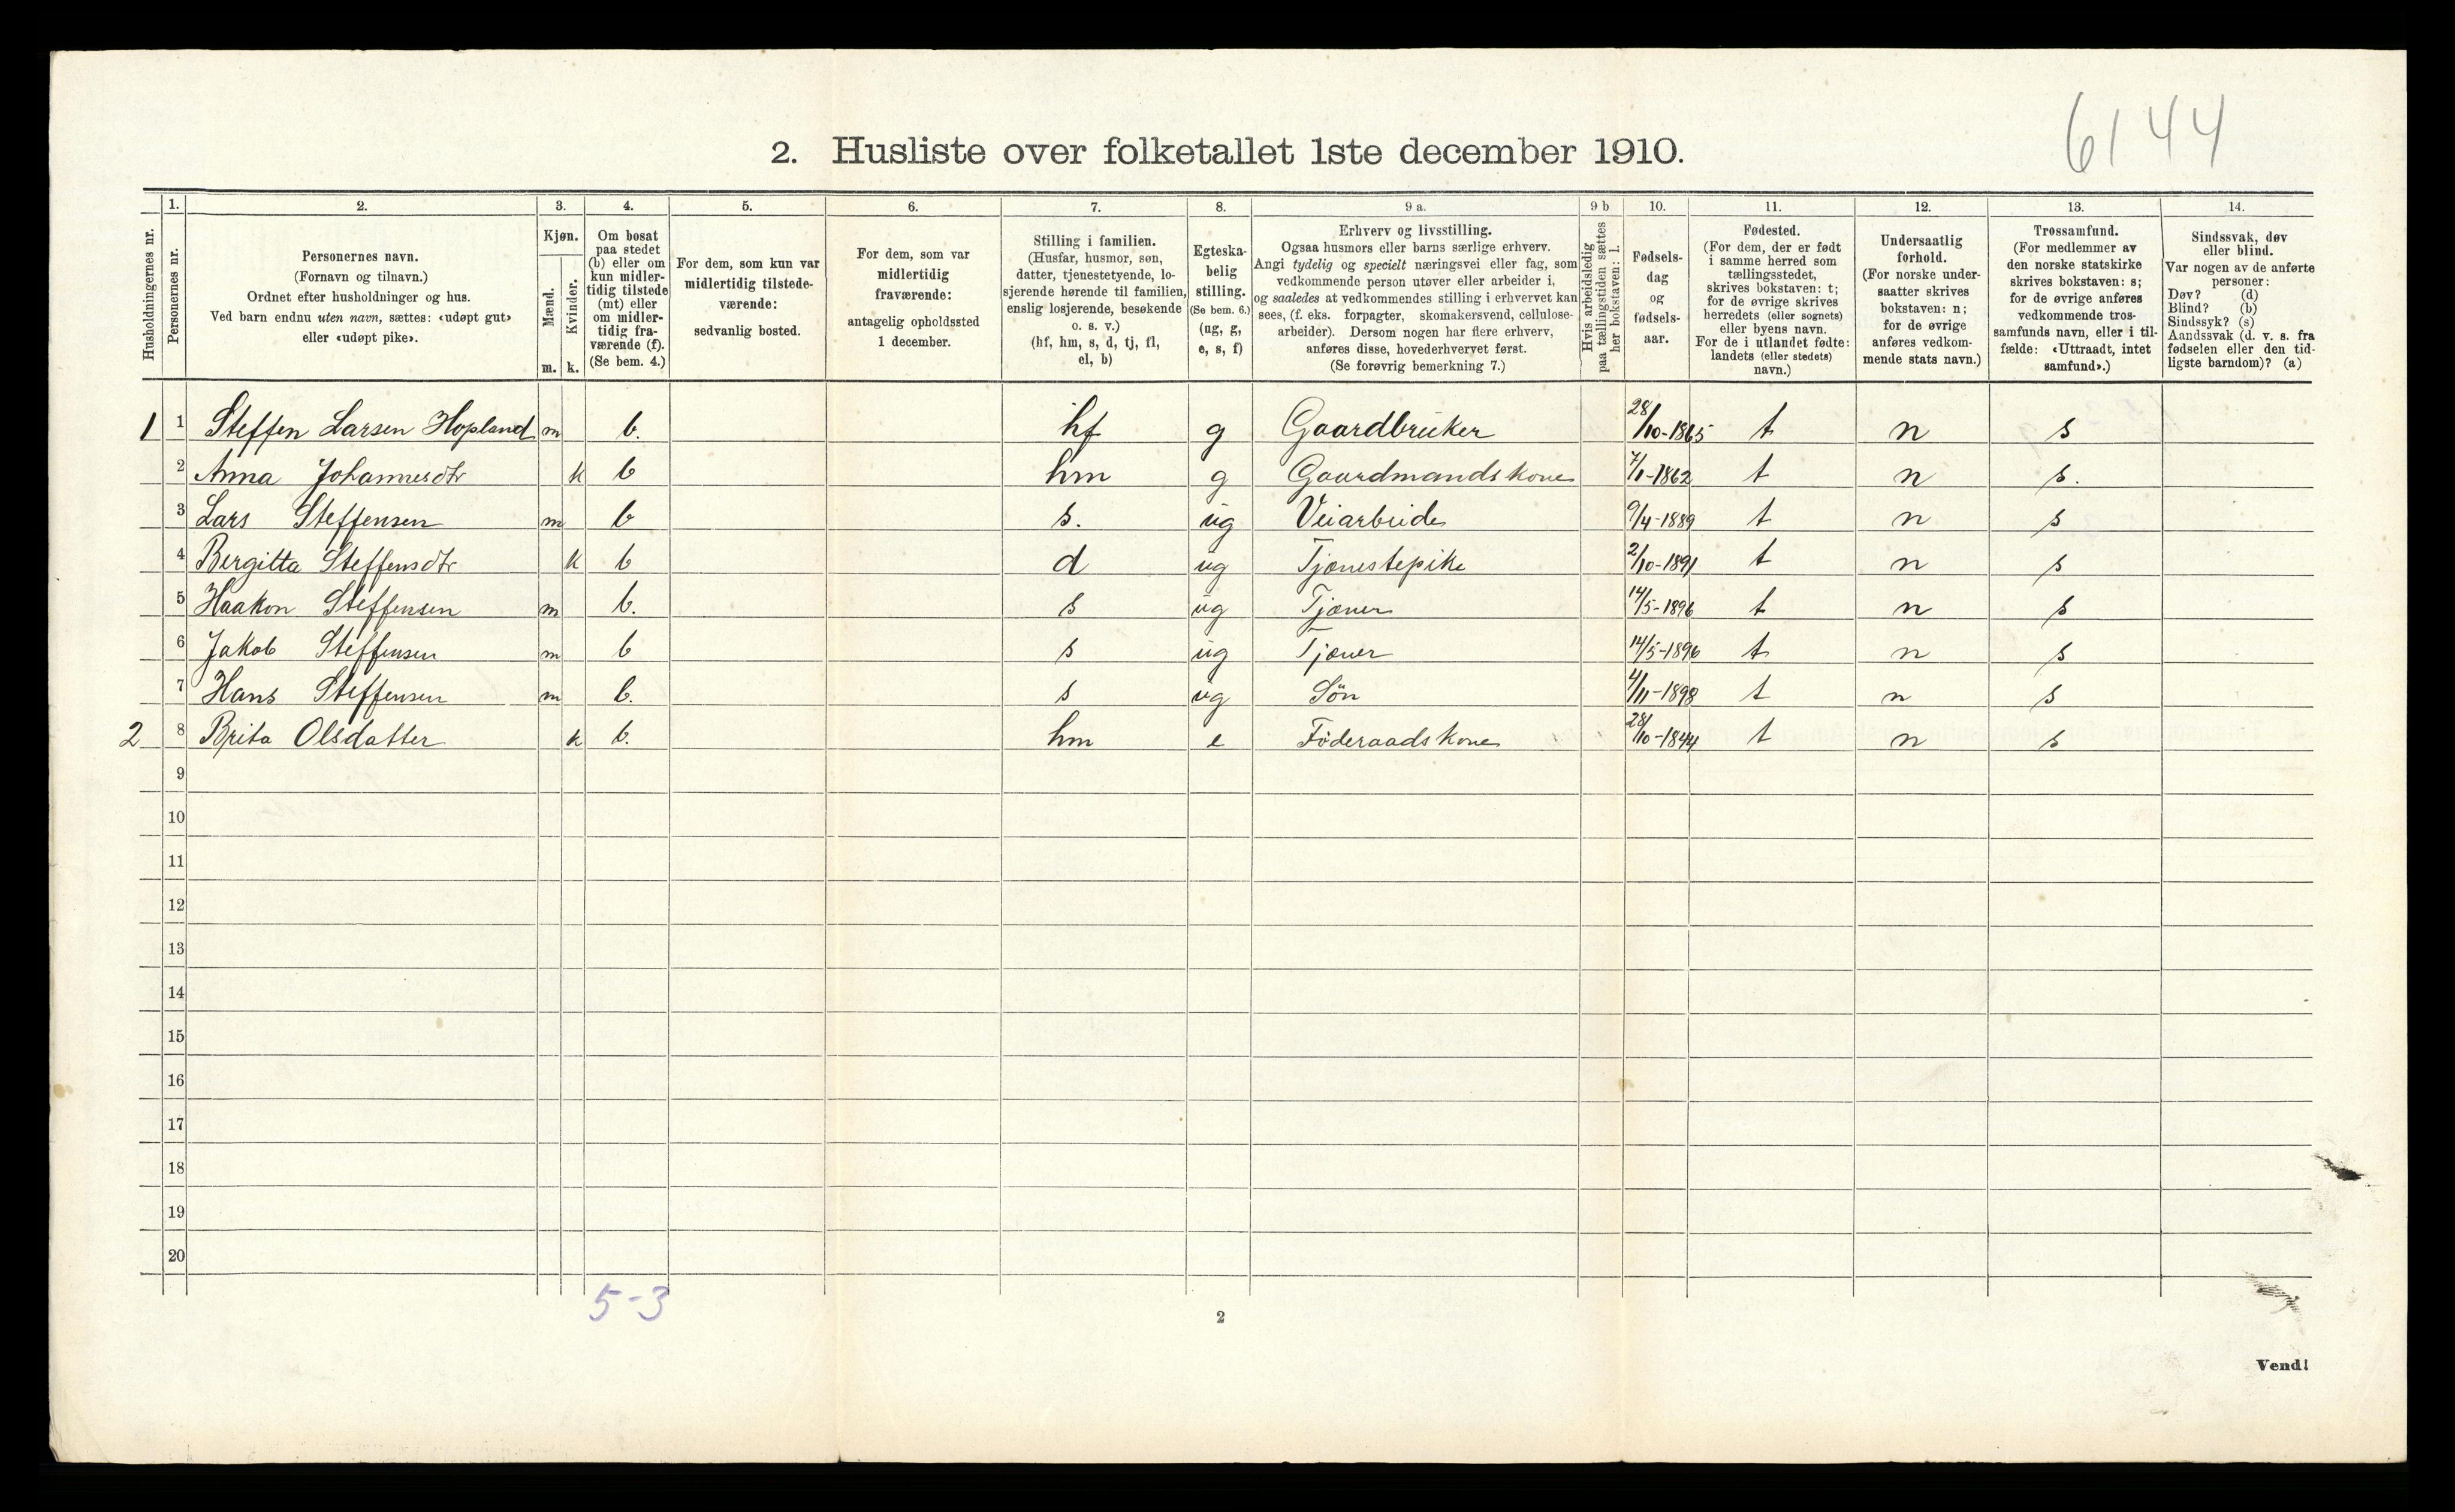 6144
2. Husliste over folketallet 1ste december 1910.
Husholdningernes nr.
1. Personernes nr.
2. Personernes navn.
(Fornavn og tilnavn.)
Ordnet efter husholdninger og hus.
Ved barn endnu uten navn, sættes: «udøpt gut»
eller «udøpt pike».
3. Kjøn.
Mænd. m.
Kvinder. k.
4. Om bosat
paa stedet
(b) eller om
kun midler-
tidig tilstede
(mt) eller
om midler-
tidig fra-
værende (f).
(Se bem. 4.)
5. For dem, som kun var
midlertidig tilstede-
værende:
sedvanlig bosted.
6. For dem, som var
midlertidig
fraværende:
antagelig opholdssted
1 december.
7. Stilling i familien.
(Husfar, husmor, søn,
datter, tjenestetyende, lo-
sjerende hørende til familien,
enslig losjerende, besøkende
o. s. v.)
(hf, hm, s, d, tj, fl,
el, b)
8. Egteska-
belig
stilling.
(Se bem. 6.)
(ug, g,
e, s, f)
9 a. Erhverv og livsstilling.
Ogsaa husmors eller barns særlige erhverv.
Angi tydelig og specielt næringsvei eller fag, som
vedkommende person utøver eller arbeider i,
og saaledes at vedkommendes stilling i erhvervet kan
sees, (f. eks. forpagter, skomakersvend, cellulose-
arbeider). Dersom nogen har flere erhverv,
anføres disse, hovederhvervet først.
(Se forøvrig bemerkning 7.)
9 b Hvis arbeidsledig
paa tællingstiden sættes
her bokstaven: l.
10. Fødsels-
dag
og
fødsels-
aar.
11. Fødested.
(For dem, der er født
i samme herred som
tællingsstedet,
skrives bokstaven: t;
for de øvrige skrives
herredets (eller sognets)
eller byens navn.
For de i utlandet fødte:
landets (eller stedets)
navn.)
12. Undersaatlig
forhold.
(For norske under-
saatter skrives
bokstaven: n;
for de øvrige
anføres vedkom-
mende stats navn.)
13. Trossamfund.
(For medlemmer av
den norske statskirke
skrives bokstaven: s;
for de øvrige anføres
vedkommende tros-
samfunds navn, eller i til-
fælde: «Uttraadt, intet
samfund».)
14. Sindssvak, døv
eller blind.
Var nogen av de anførte
personer:
Døv? (d)
Blind? (b)
Sindssyk? (s)
Aandssvak (d. v. s. fra
fødselen eller den tid-
ligste barndom)? (a)
1 1 Steffen Larsen Hopland m b. hf g Gaardbruker 28/10-1865 t n s
2 Anna Johannesdtr k b hm g Gaardmandskone 7/1-1862 t n s.
3 Lars Steffensen m b s. ug Veiarbeide 9/4-1889 t n s
4 Bergitta Steffensdtr k b d ug Tjænestepike 2/10-1891 t n s
5 Haakon Steffensen m b. s ug Tjæner 14/5-1896 t n s
6 Jakob Steffensen m b s ug Tjæner 14/5-1896 t n s
7 Hans Steffensen m b. s ug Søn 4/11-1898 t n s
2 8 Brita Olsdatter k b. hm e Føderaadskone 28/10-1844 t n s
9
10
11
12
13
14
15
16
17
18
19
20
5-3
2
Vend!